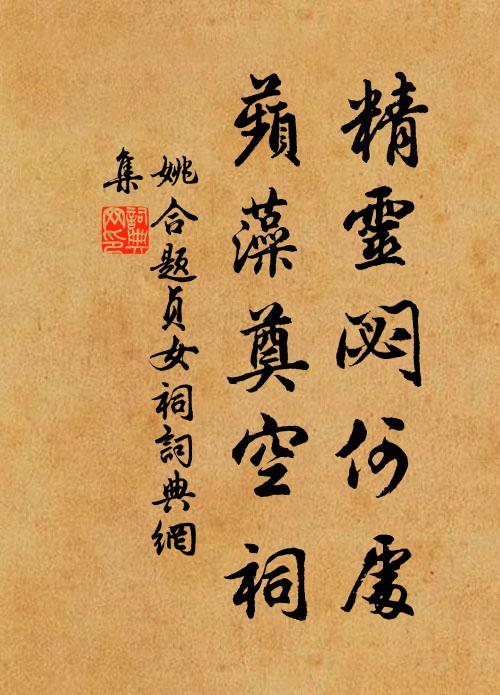 精靈閟何處
蘋藻奠空祠
姚合題貞女祠詞典網
集
詞典網印